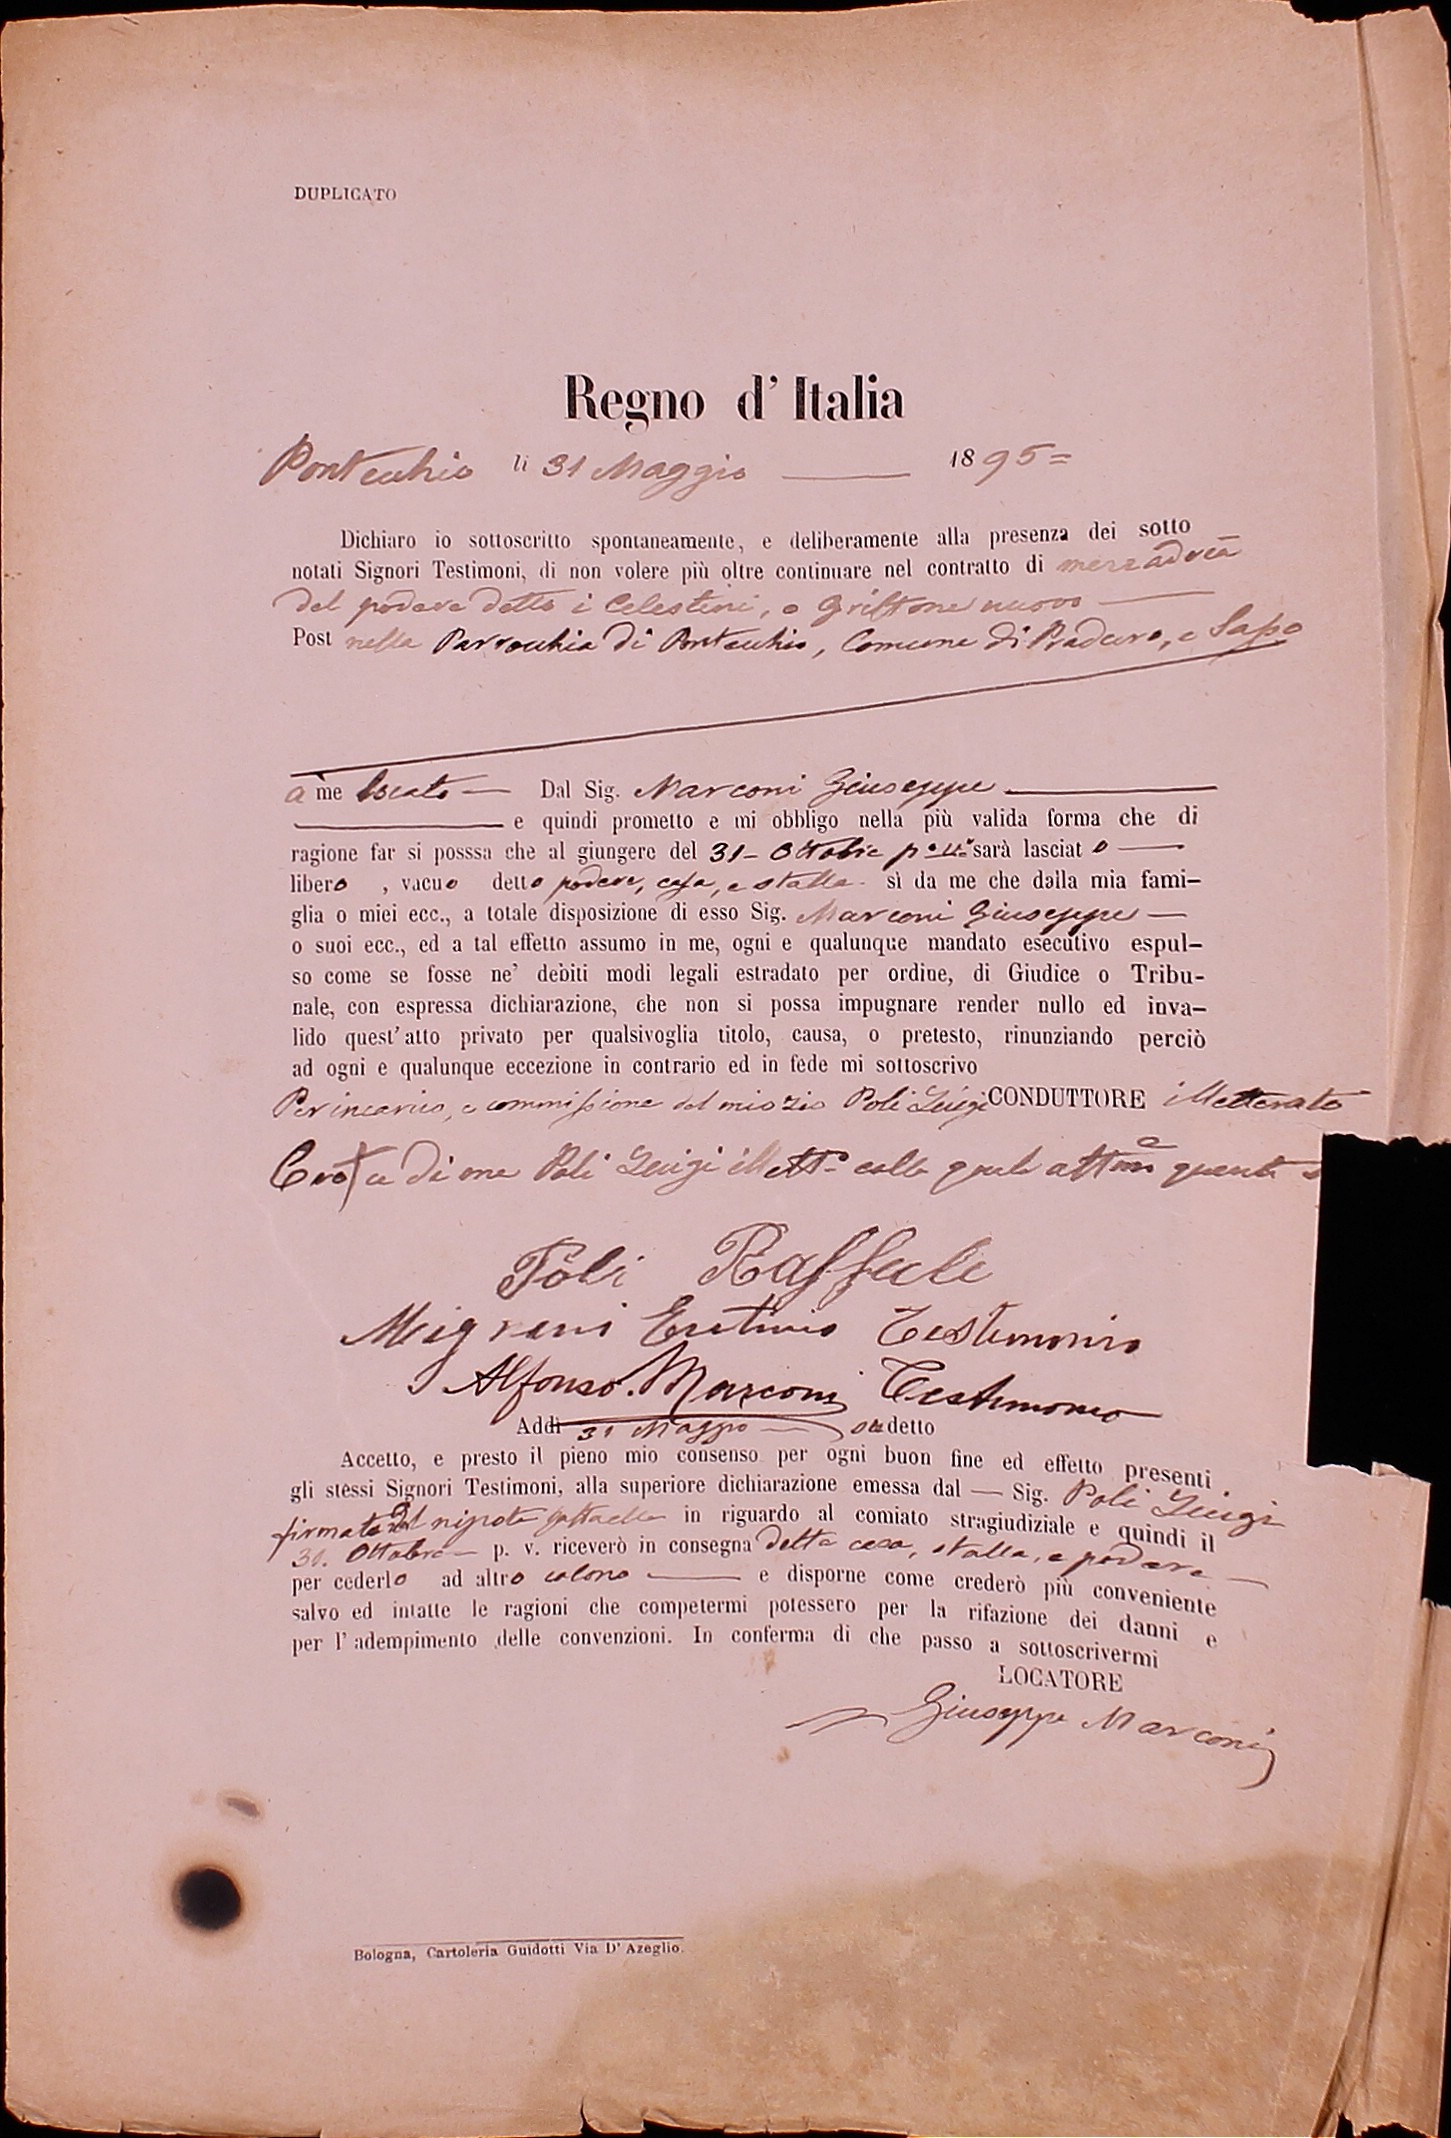 DUPLICATO
Regno d' Italia
Pontecchio li 31 Maggio — 1895=
Dichiaro io sottoscritto spontaneamente, e deliberamente alla presenza dei sotto
notati Signori Testimoni, di non volere più oltre continuare nel contratto di mezzadria
del podere detto i Celestini, o Griffone nuovo —
Post nella Parrocchia di Pontecchio, Comune di Praduro, e Sasso
a me locato — Dal Sig. Marconi Giuseppe —
— e quindi prometto e mi obbligo nella più valida forma che di
ragione far si posssa che al giungere del 31 – Ottobre p.° v.° sarà lasciato —
libero , vacuo detto podere, casa, e stalla - sì da me che dalla mia fami–
glia o miei ecc., a totale disposizione di esso Sig. Marconi Giuseppe —
o suoi ecc., ed a tal effetto assumo in me, ogni e qualunque mandato esecutivo espul–
so come se fosse ne' debiti modi legali estradato per ordine, di Giudice o Tribu-
nale, con espressa dichiarazione, che non si possa impugnare render nullo ed inva–
lido quest' atto privato per qualsivoglia titolo, causa, o pretesto, rinunziando perciò
ad ogni e qualunque eccezione in contrario ed in fede mi sottoscrivo
Per incarico, e commissione del mio zio Poli Luigi CONDUTTORE illetterato
Cro+ce di me Poli Luigi illett.° colla quale
Poli Raffaele
Testimonio
Alfonso Marconi Testimonio
Addì 31 Maggio — sudetto
Accetto, e presto il pieno mio consenso per ogni buon fine ed effetto presenti
gli stessi Signori Testimoni, alla superiore dichiarazione emessa dal — Sig. Poli Luigi
firmata dal nipote Raffaele in riguardo al comiato stragiudiziale e quindi il
31. Ottobre — p. v. riceverò in consegna detta casa, stalla, e podere —
per cederlo ad altro colono — e disporne come crederò più conveniente
salvo ed intatte le ragioni che competermi potessero per la rifazione dei danni e
per l' adempimento delle convenzioni. In conferma di che passo a sottoscrivermi
LOCATORE
Giuseppe Marconi
Bologna, Cartoleria Guidotti Via D' Azeglio.